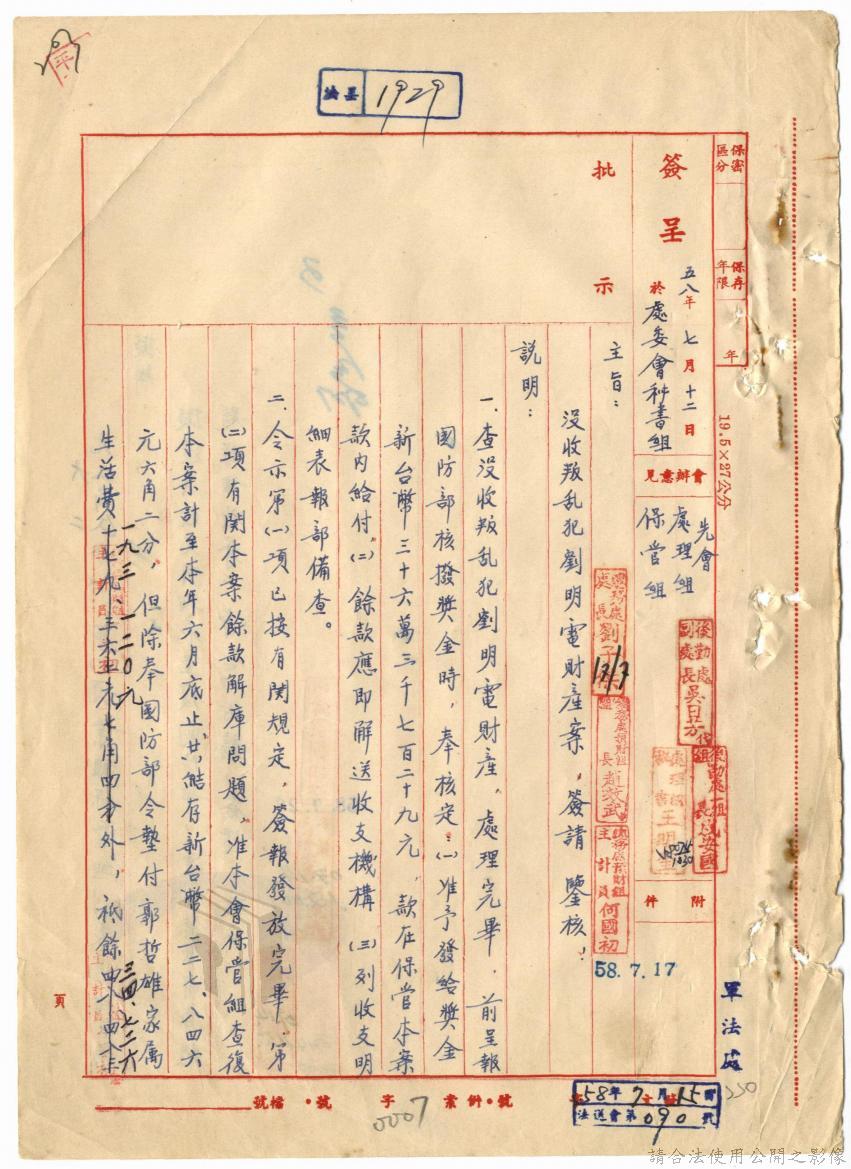 法墨 1929
保密區分
保存年限
年
19.5×27公分
簽呈
五八年七月十二日
於處委會秘書組
會辦意見
先會
處理組
保管組
附件
後勤處副處長吳日芳
批示
主旨：
沒收叛乱犯劉明電財產案，簽請鑒核，
說明：
一、查沒收叛乱犯劉明電財產，處理完畢，前呈報
國防部核撥獎金時，奉核定：(一)准予發給獎金
新台幣三十六萬三千七百二十九元，款在保管本案
款內給付，(二)餘款應即解送收支機構(三)列收支明
細表報部備查。
二、令示第(一)項已按有関規定，簽報發放完畢，第
(二)項有関本案餘款解庫問題，准本會保管組查復
本案計至本年六月底止，共結存新台幣二二七、八四六
元六角二分，但除奉國防部令墊付郭哲雄家属
一九三、一二〇九
生活費
元七角四分外，祗餘
三四、七二六
主計員何國初
58.7.17
軍法處
頁
58年7月15日
法送會第090號
字
案
0007
號
件
號
檔號
請合法使用公開之影像